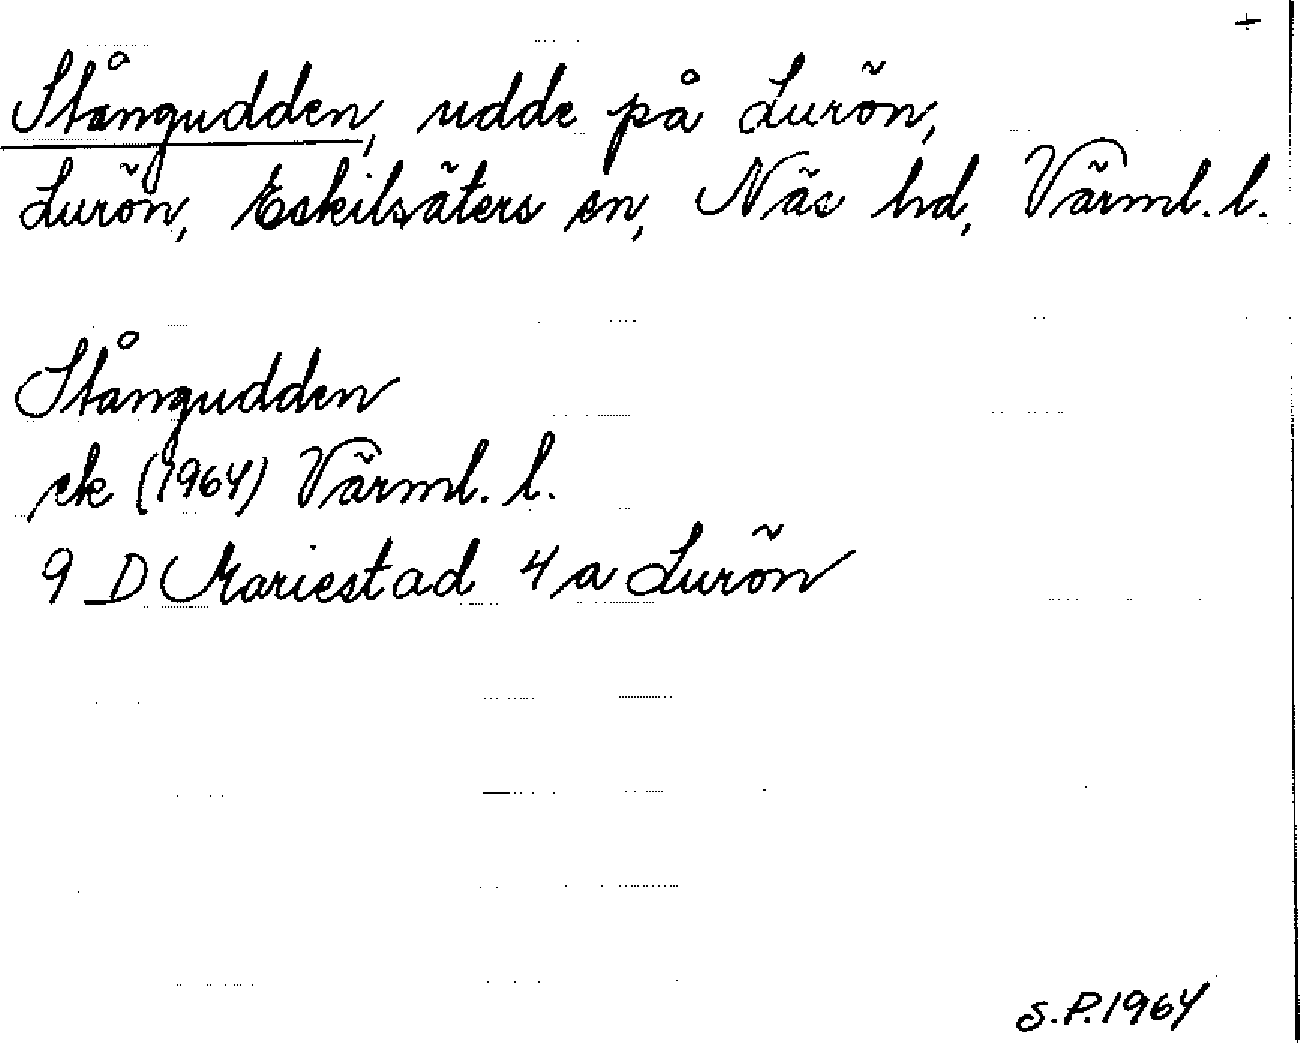 +
Stångudden, udde på Lurön,
Lurön, Eskilsäters sn, Näs hd, Värml. l.
Stångudden
ek (1964) Värml. l.
9 D Mariestad 4 a Lurön
S.P. 1964